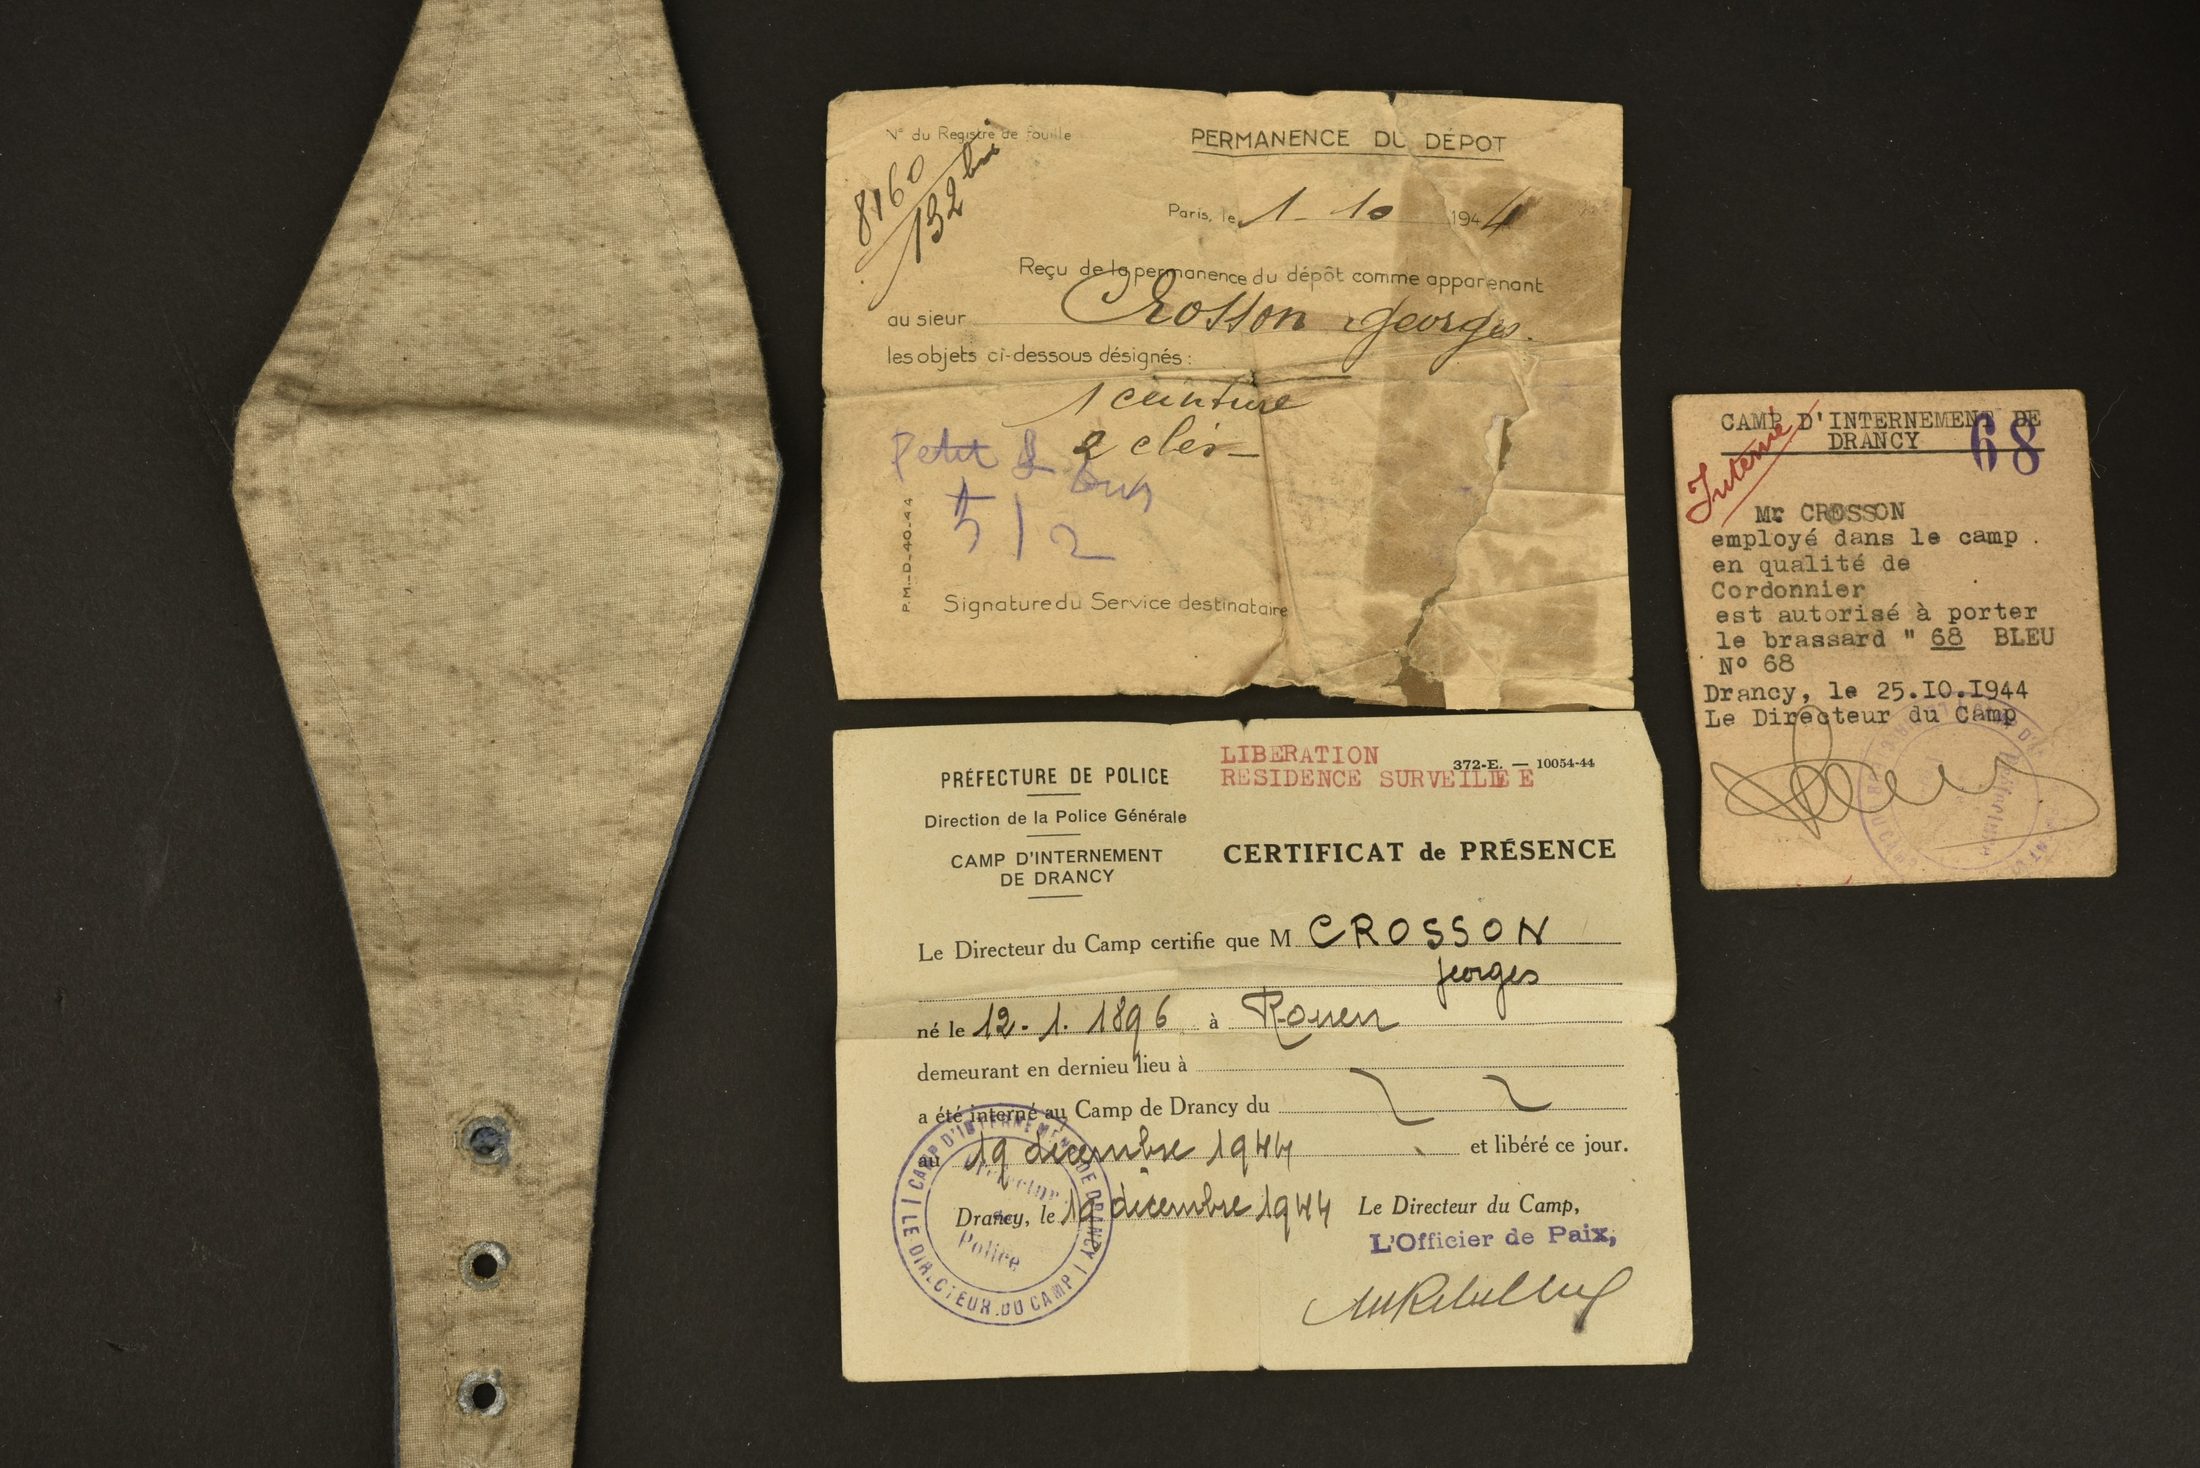 N° du Registre de fouille
8160
132 bis
PERMANENCE DU DÉPOT
Paris, le 1-10 1944
Reçu de la permanence du dépôt comme appartenant
au sieur Crosson Georges.
les objets ci-dessous désignés :
1 ceinture
2 clés
Petit
5 | 2
P.M.-D-40-44
Signature du Service destinataire
CAMP D'INTERNEMENT DE
DRANCY
68
Interné
Mr CROSSON
employé dans le camp .
en qualité de
Cordonnier
est autorisé à porter
le brassard " 68 BLEU
N° 68
Drancy, le 25.IO.I944
Le Directeur du Camp
PRÉFECTURE DE POLICE
Direction de la Police Générale
CAMP D'INTERNEMENT
DE DRANCY
LIBERATION
RESIDENCE SURVEILLEE
372-E. — 10054-44
CERTIFICAT de PRÉSENCE
Le Directeur du Camp certifie que M CROSSON
Georges
né le 12-1.1896 à Rouen
demeurant en dernier lieu à
a été interné au Camp de Drancy du
au 19 décembre 1944 et libéré ce jour.
Drancy, le 19 décembre 1944
Le Directeur du Camp,
L'Officier de Paix,
CAMP D'INTERNEMENT DE DRANCY | LE DIRECTEUR DU CAMP |
Police